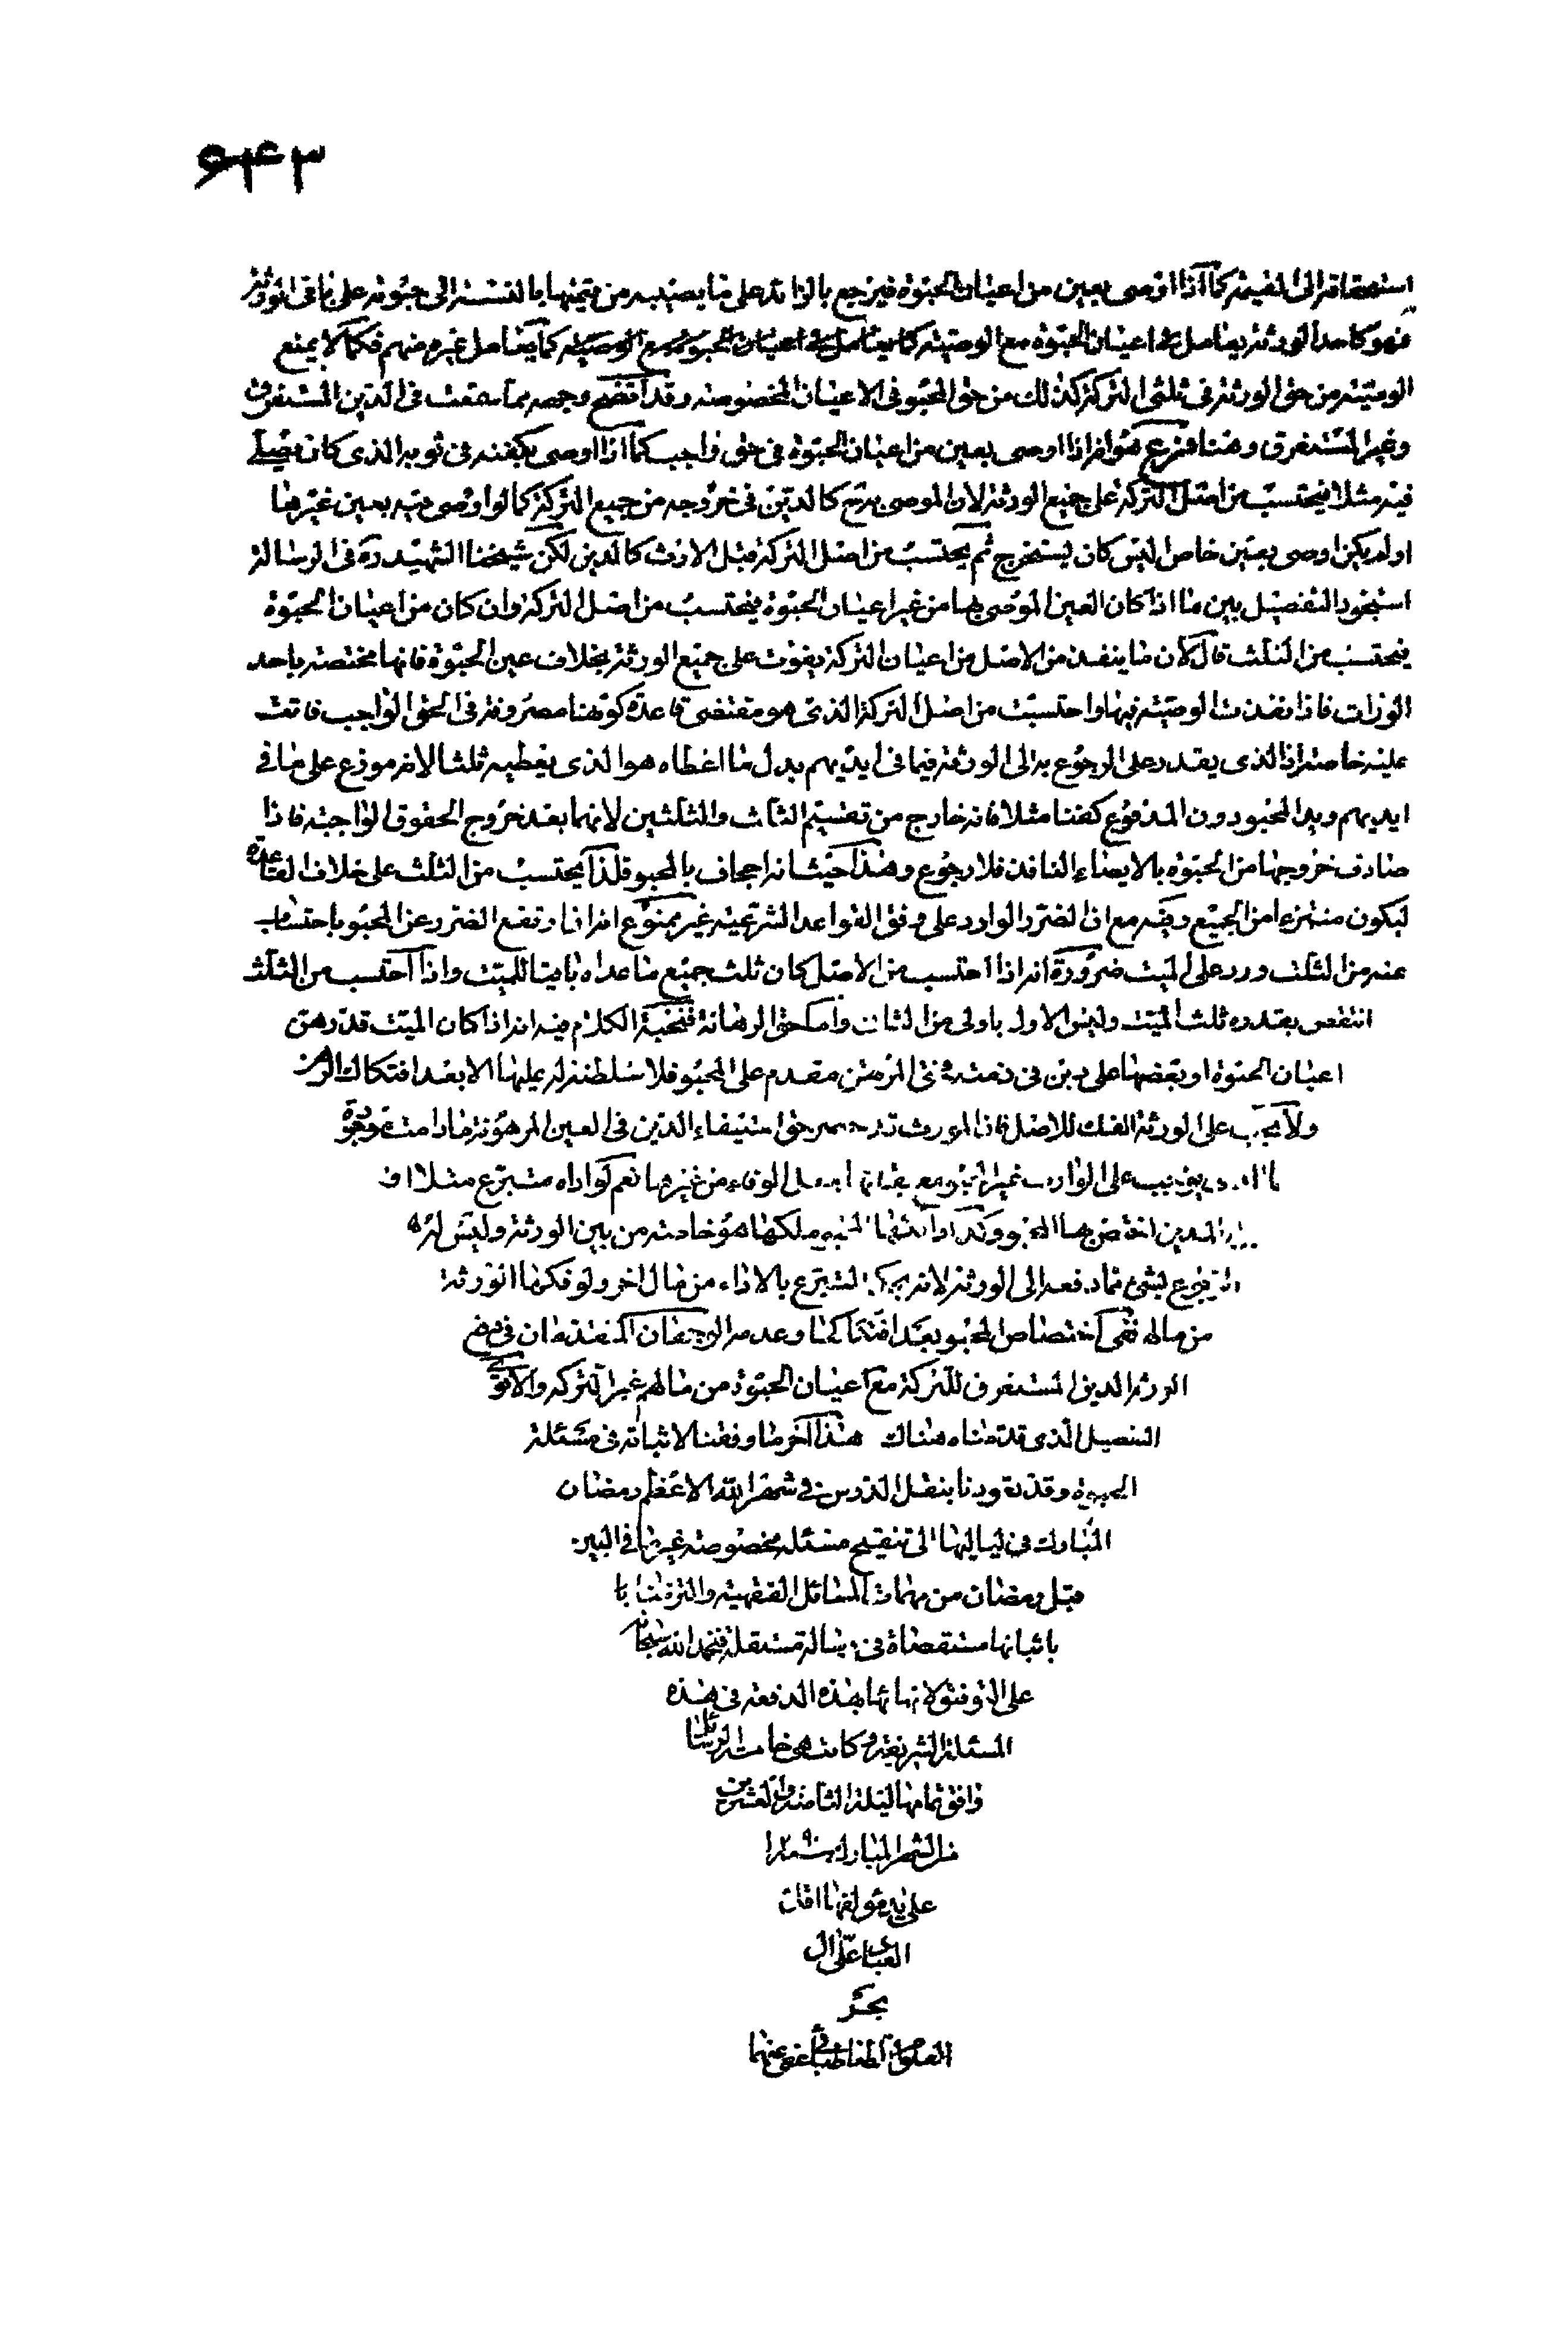 ۶۴۳
استحقاقه الى القيمة كما اذا اوصى بعين من اعيان الحبوة فيرجع بالزائد على ما يصيبه من قيمتها بالنسبة الى حبوته على باقى الورثة
فهو كاحد الورثة يعامل فى اعيان الحبوة مع الوصية كما يعامل فى اعيان الحبوة مع الوصية كما يعامل غيره منهم فكما لا يمنع
الوصية من حق الورثة فى ثلثى التركة كذلك من حق المحبو فى الاعيان المخصوصة وقد اتضح وجهه بما سمعت فى الدين المستغرق
وغير المستغرق وهنا فرع هو انه اذا اوصى بعين من اعيان الحبوة فى حق واجب كما اذا اوصى بكفنه فى ثوبه الذى كان يصلى
فيه مثلا فيحتسب من اصل التركة على جميع الورثة لان الموصى به ح كالدين فى خروجه من جميع التركة كما لو اوصى فيه بعين غيرها
او لم يكن اوصى بعين خاص اليس كان يستخرج ثم يحتسب من اصل التركة قبل الارث كالدين لكن شيخنا الشهيد ره فى الرسالة
استجود التفصيل بين ما اذا كان العين الموصى بها من غير اعيان الحبوة فيحتسب من اصل التركة وان كان من اعيان الحبوة
فيحتسب من الثلث قال لان ما ينفذ من الاصل من اعيان التركة يفوت على جميع الورثة بخلاف عين الحبوة فانها مختصة باحد
الوراث فاذا نفذت الوصية فيها واحتسبت من اصل التركة الذى هو مقتضى قاعدة كونها مصروفة فى الحق الواجب فاتت
عليه خاصة اذ الذى يقدر على الرجوع به الى الورثة فيما فى ايديهم بدل ما اعطاه هو الذى يعطيه ثلثا لانه موزع على ما فى
ايديهم ويد المحبو دون المدفوع كفنا مثلا فانه خارج من تقسيم الثلث والثلثين لانهما بعد خروج الحقوق الواجبة فاذا
صادف خروجها من الحبوة بالايصاء النافذ فلا رجوع وهذا حيث انه اجحاف بالمحبو فلذا يحتسب من الثلث على خلاف القاعدة
ليكون منتزعا من الجميع وفيه مع ان الضرر الوارد على وفق القواعد الشرعية غير ممنوع انه انما رتفع الضرر عن المحبو باحتساب
عنه من الثلث ورد على الميت ضرورة انه اذا احتسب من الاصل كان ثلث جميع ما عداه باقيا للميت واذا احتسب من الثلث
انتقص بقدره ثلث الميت وليس الاول باولى من الثانى واما حق الرهانة فنخبة الكلام فيه انه اذا كان الميت قد رهن
اعيان الحبوة او بعضها على دين فى ذمته فحق المرتهن مقدم على المحبو فلا سلطنة له عليها الا بعد افتكاك الرهن
ولا يجب على الورثة الفك للاصل فاذا حق استيفاء الدين فى العين المرهونة مادامت موجودة
على الوارث غير المحبو مع بقائها الوفاء من غيرها نعم لو اداه متبرع مثلا او
الدين اختص بها المحبو وكذا هو خاصة من بين الورثة وليس له
الرجوع بشئ مما دفعه الى الورثة لانه ح كالمتبرع بالاداء من مال اخر ولو فكها الورثة
من مالهم ففى اختصاص المحبو بعد افتكاكها وعدمه الوجهان المتقدمان فى دفع
الورثة الدين المستغرق للتركة مع اعيان الحبوة من مالهم غير التركة والاقوى
التفصيل الذى قدمناه هناك هذا آخر ما وفقنا لاثباته فى مسئلة
الحبوة وقد تعودنا بنقل الدرس فى شهر الله الاعظم رمضان
المبارك فى لياليها الى تنقيح مسئلة مخصوصة غيرما فى البين
قبل رمضان من مهمات المسائل الفقهية والتزمنا با
باثباتها مستقصاة فى رسالة مستقلة فنحمد الله سبحانه
على التوفيق لانهائها هذه الدفعة فى هذه
المسئلة الشريفة وكانت هى خامسة الرسائل
وافق تمامها ليلة الثامنة والعشرين
من الشهر المبارك سنة ۱۲۹۰
على يد مؤلفها اقل
العباد على آل
بحر
العلوم الطباطبائى عفى عنهما